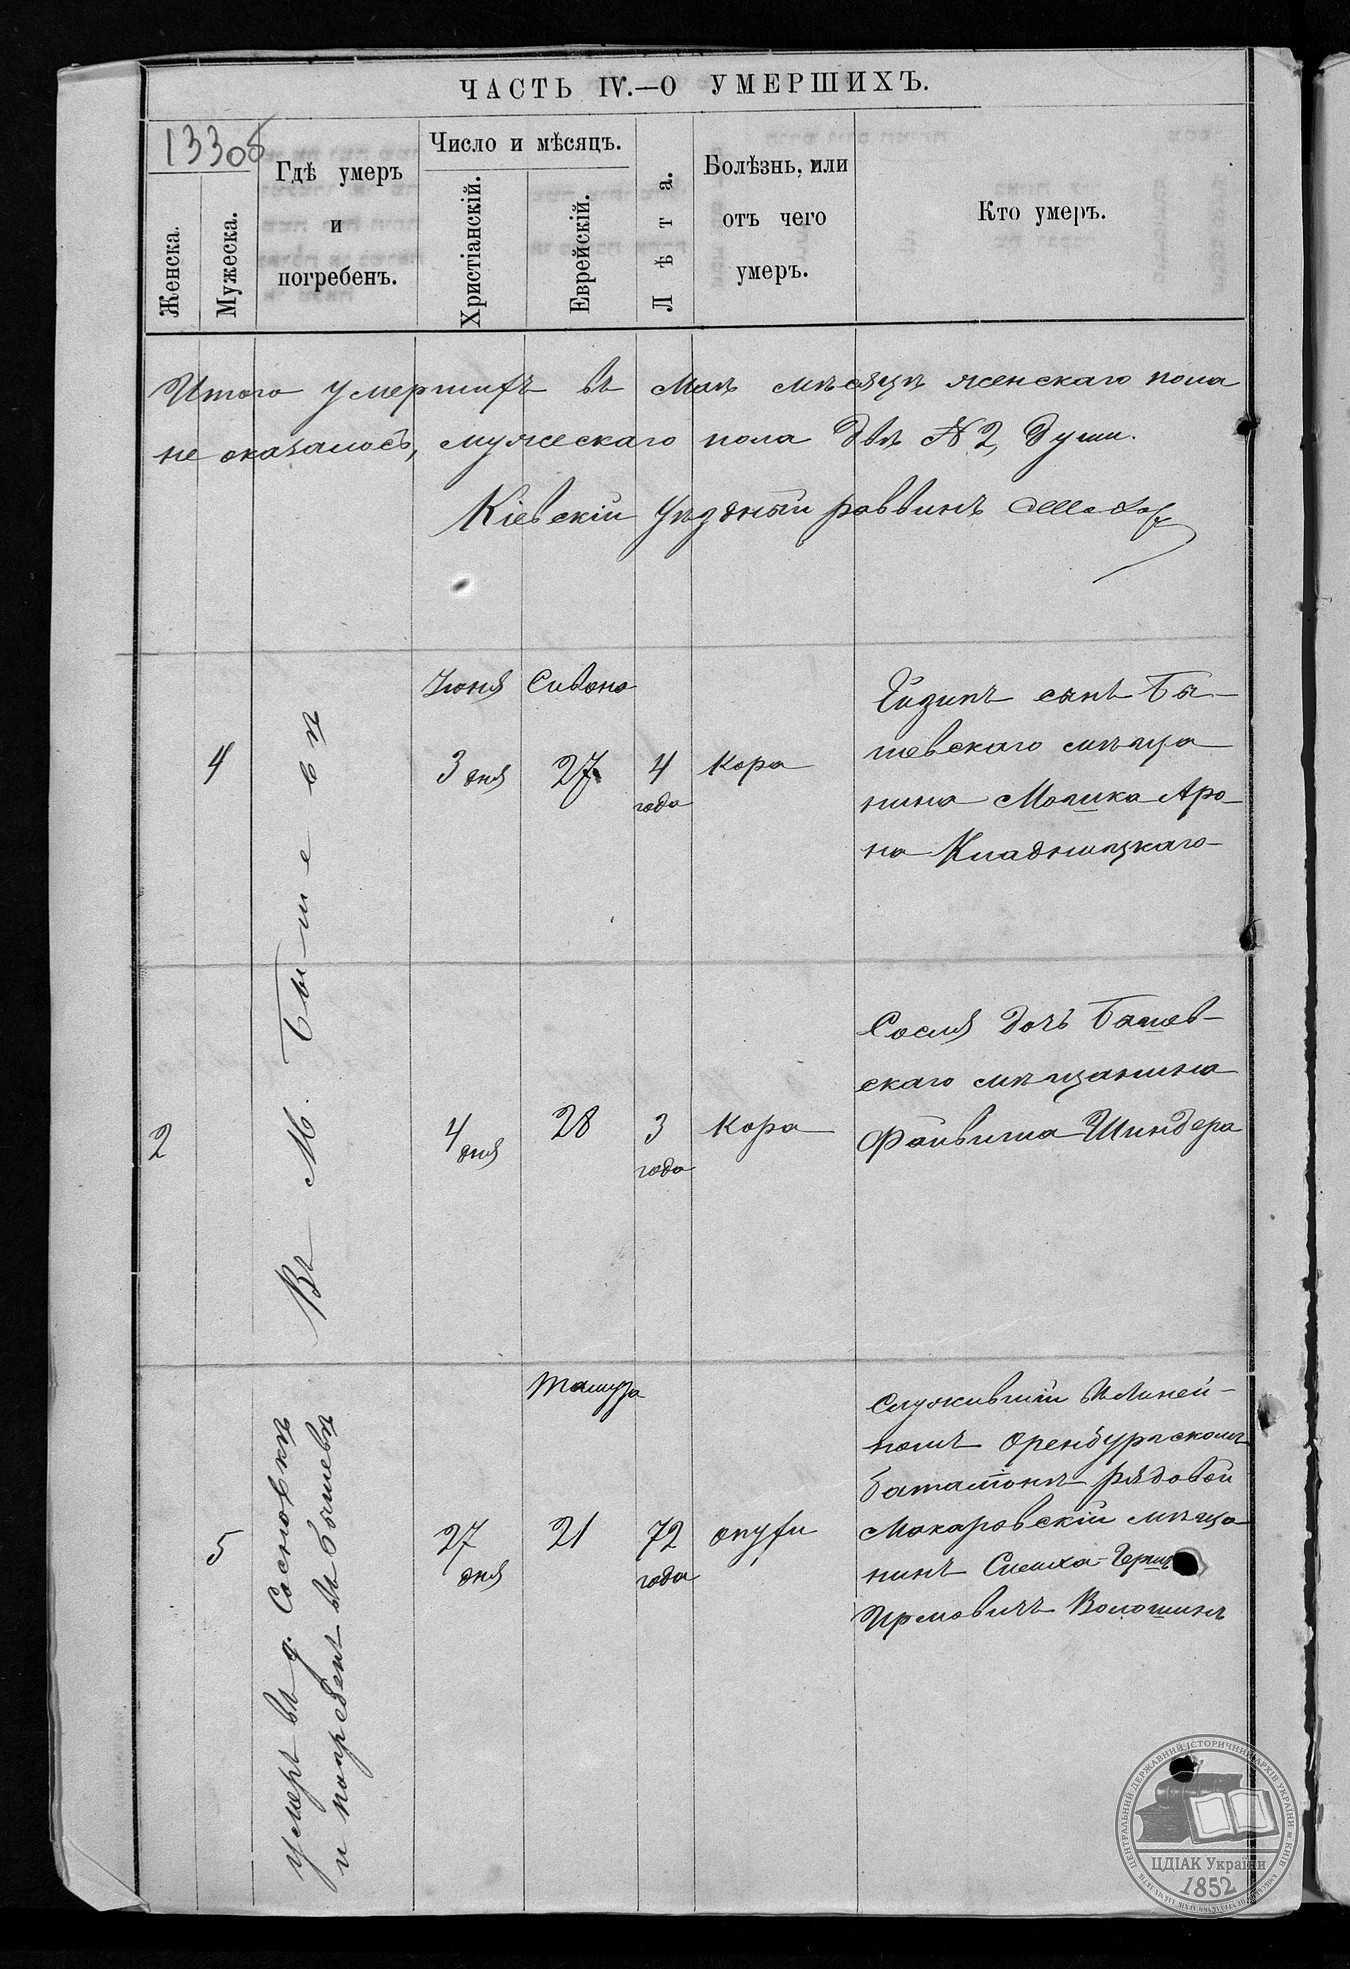 ЧАСТЬ IV.—О УМЕРШИХЪ.
Женска.
Мужеска.
Гдѣ умеръ
и
погребенъ.
Число и мѣсяцъ.
Христіанскій.
Еврейскій.
Лѣта.
Болѣзнь, или
отъ чего
умеръ.
Кто умеръ.
Итого умершихъ въ Маѣ мѣсяцѣ женскаго пола
не оказалось, мужескаго пола двѣ N 2, души.
Кіевскій уѣздный раввинъ
Въ М. Бышевѣ
4
Іюня
3 дня
Сивона
27
4
года
Кора
сынъ Бы-
шевскаго мѣща
нина Мошка Аро-
на Кладницкаго
2
4
дня
28
3
года
Кора
Сослядочь Бышев-
скаго мѣщанина
Файвиша Шиндера
умеръ въ д. Сосновкѣ
и погребенъ въ Бышевѣ
5
27
дня
Тамуза
21
72
года
опухи
Служившій въ Линей-
номъ Оренбургскомъ
баталіонѣ рядовой
Макаровскій мѣща-
нинъ Симха-
Волошинъ
ЦЕНТРАЛЬНИЙ ДЕРЖАВНИЙ ІСТОРИЧНИЙ АРХІВ УКРАЇНИ, м. КИЇВ
ЦДІАК України
1852